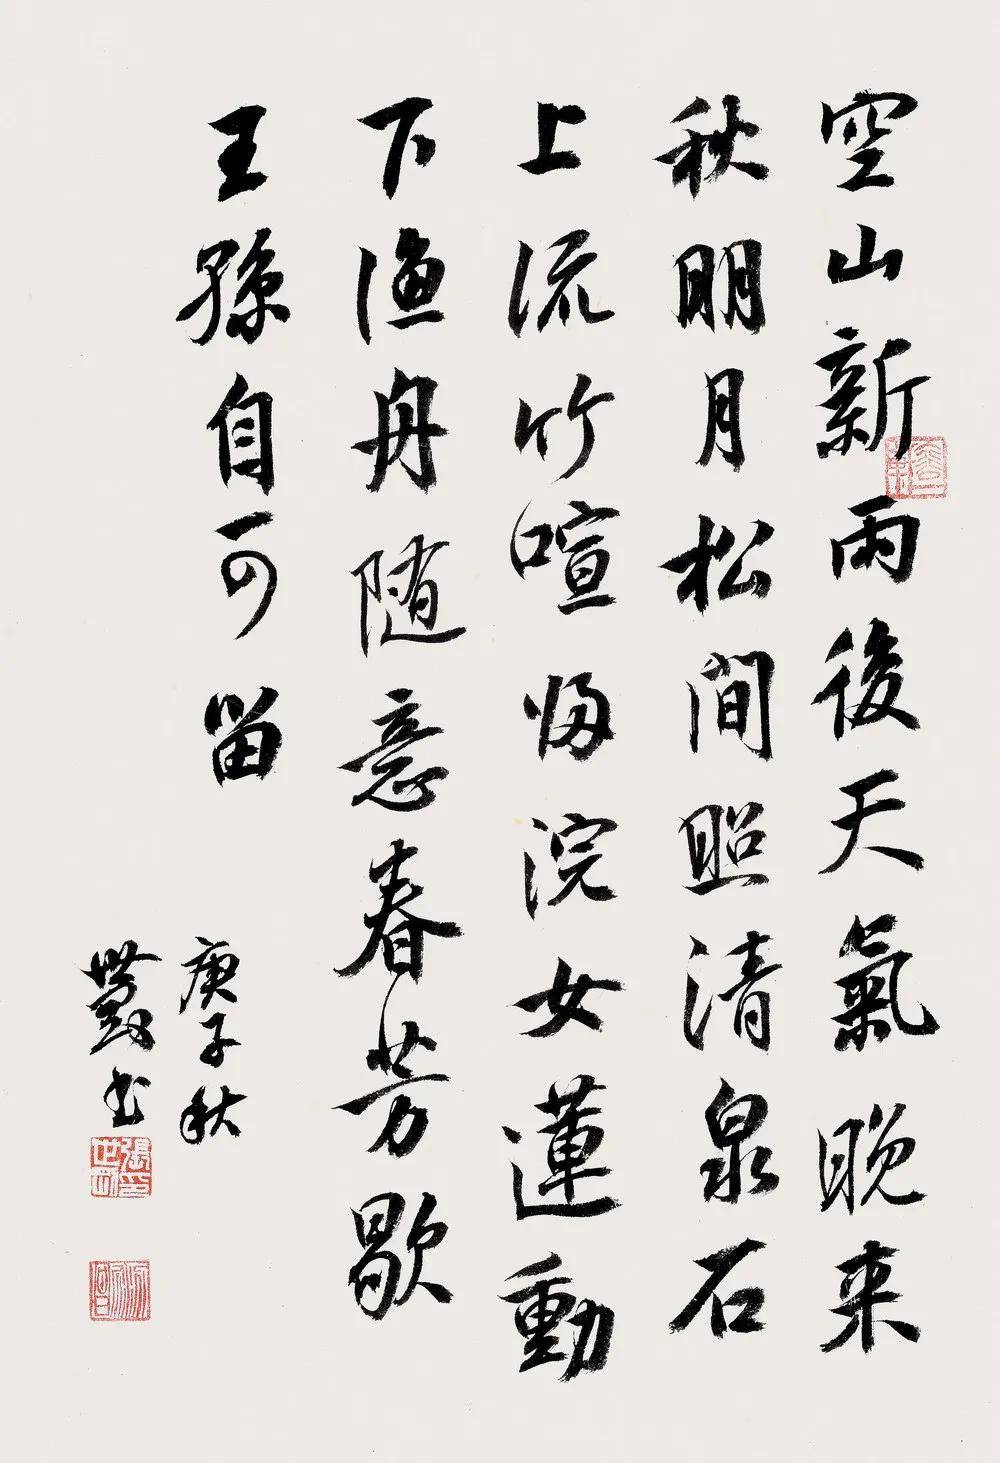 空山新雨後天氣晚来
秋明月松間照清泉石
上流竹喧归浣女蓮動
下渔舟随意春芳歇
王孫自可留
庚子秋
世书